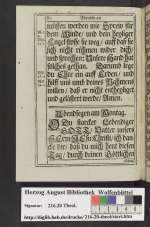 müssen werden wie Sprew für
dem Winde / und dein heyliger
Engel stosse sie weg / auff daß sie
sich nicht rühmen wider dich
und sprechen: Unsere Hand hat
solches gethan. Darumb lege
du Ehre ein auff Erden / und
hilff uns umb deines Nahmens
willen / daß er nicht entheyliget
und gelästert werde / Amen.
Abendsegen am Montag.
O Du starcker Lebendiger
GOTT / Vatter unsers
HErrn JEsu Christi, ich dan-
cke dir / daß du mich heut diesen
Tag / durch deinen Göttlich
Herzog August Bibliothek Wolfenbüttel
Signatur: 216.20 Theol.
http://diglib.hab.de/drucke/216-20-theol/start.htm